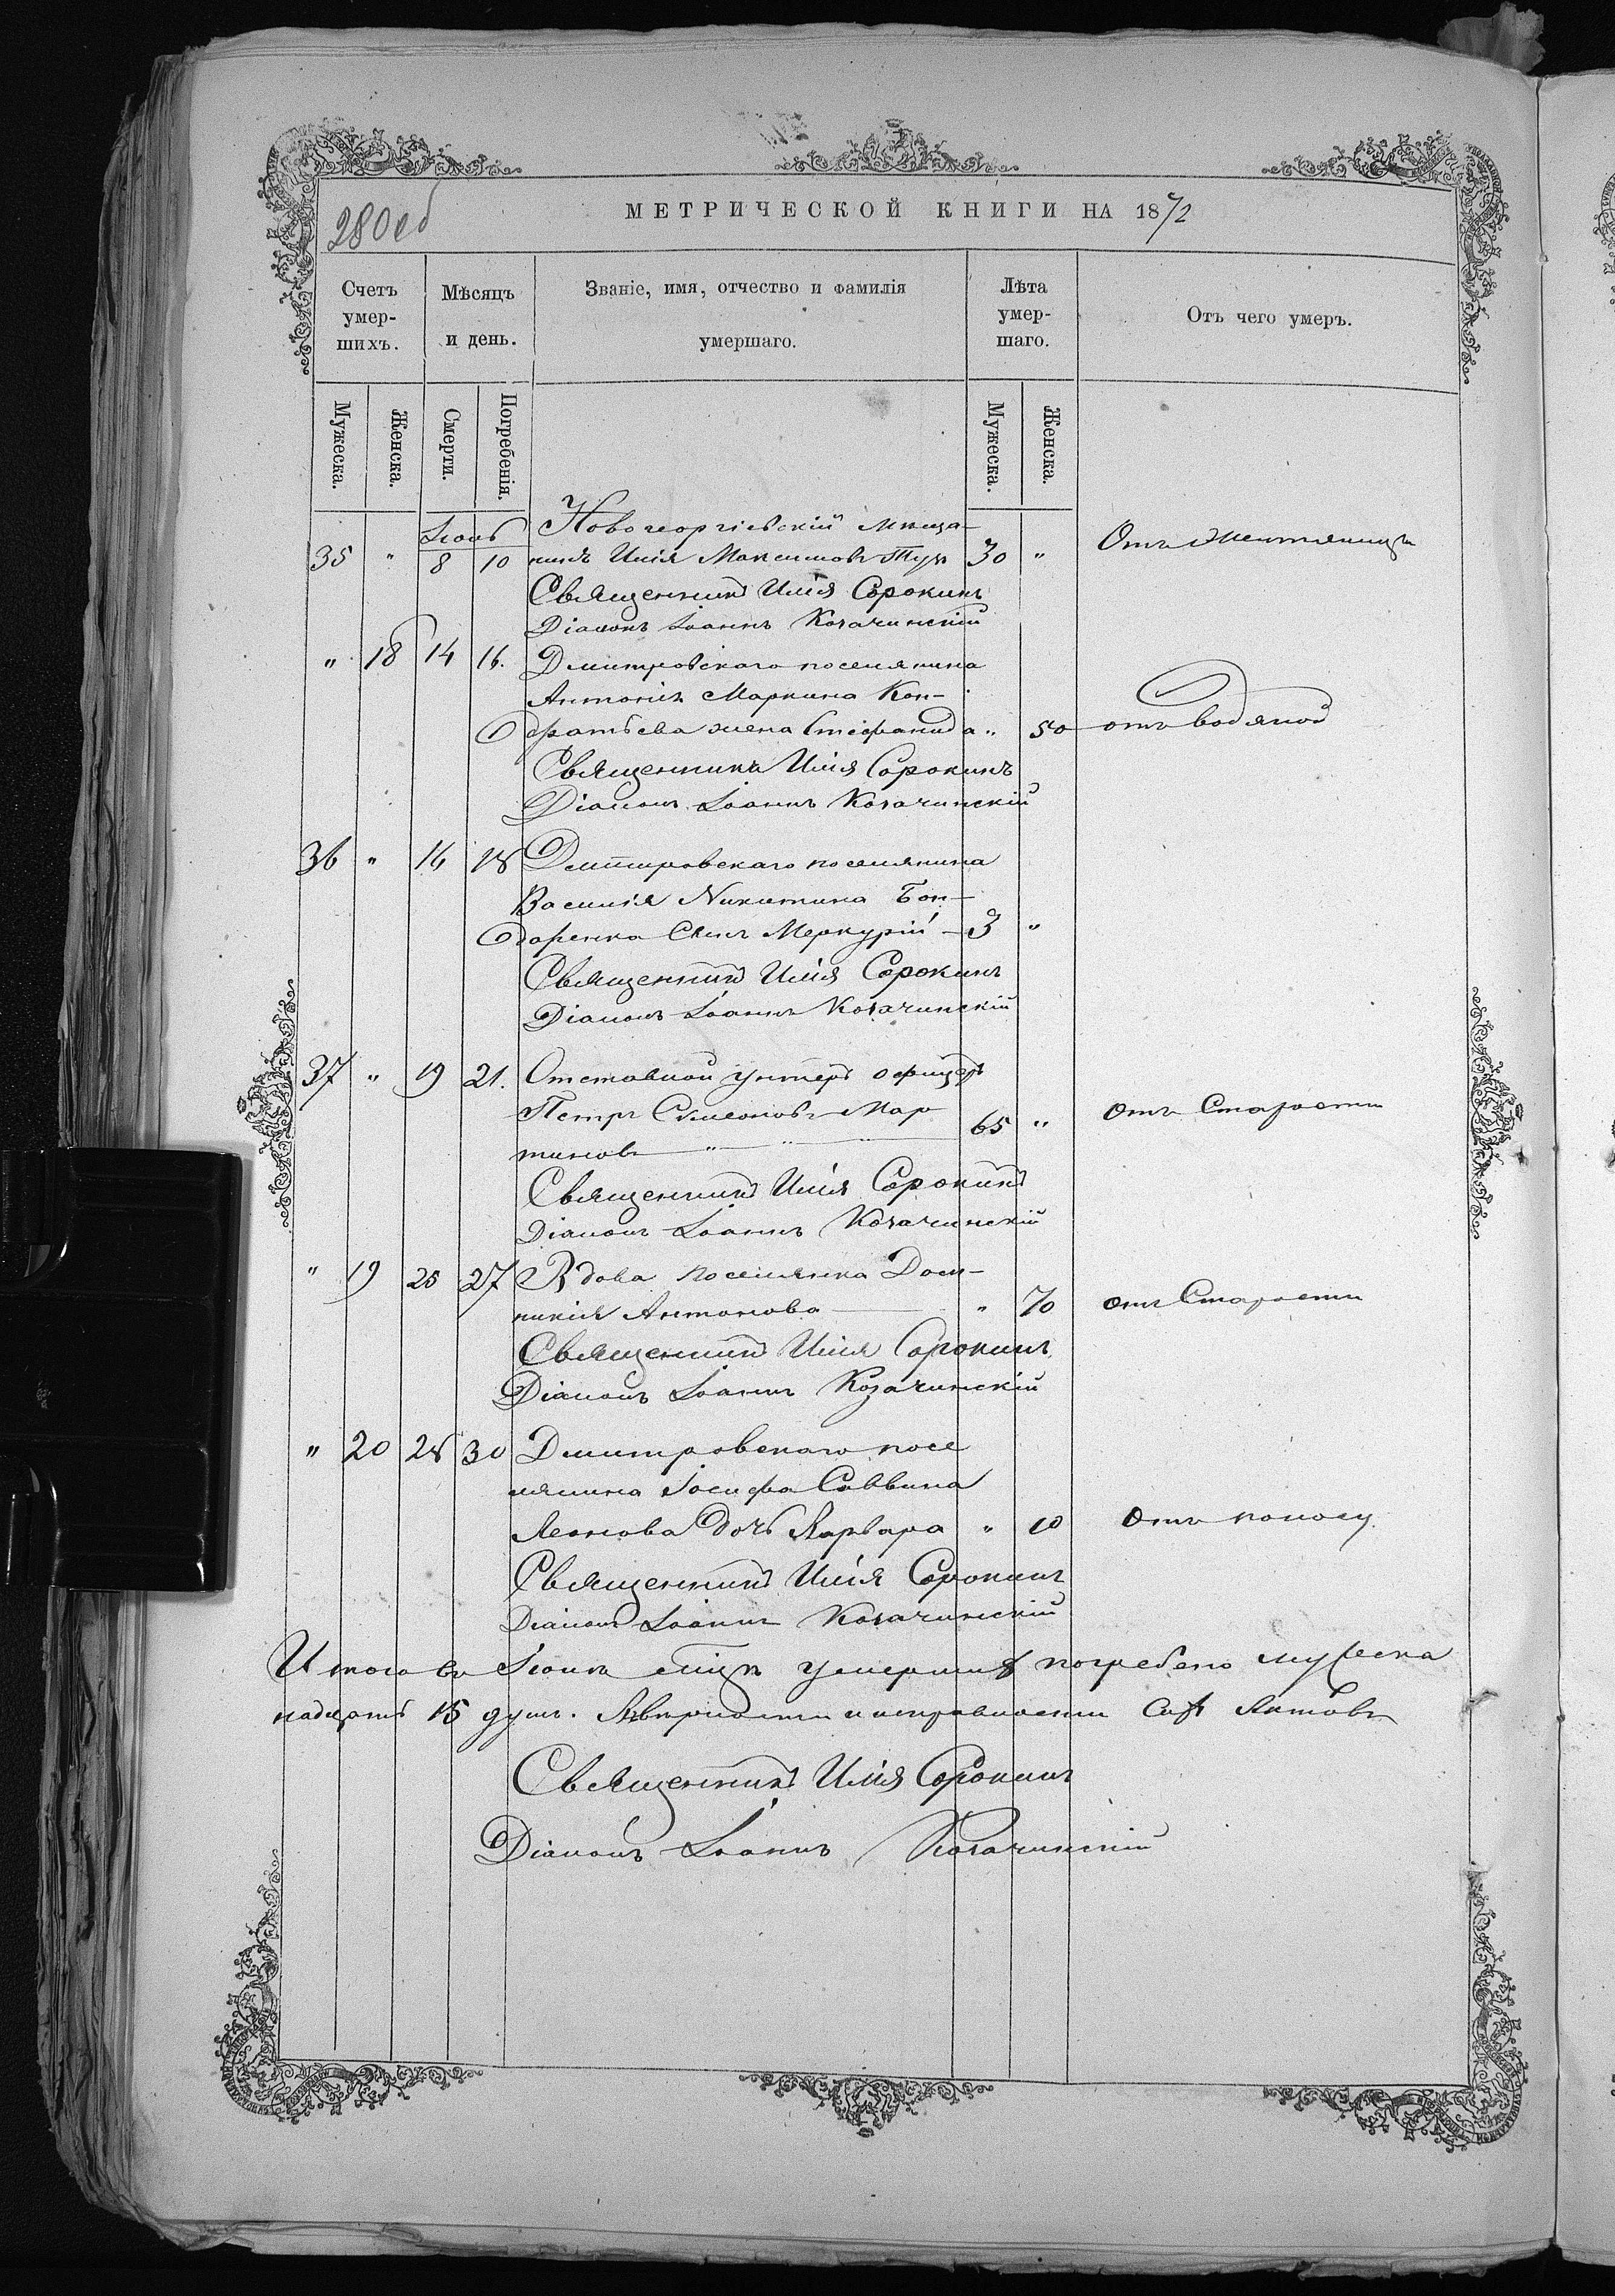 280 об
МЕТРИЧЕСКОЙ КНИГИ НА 1872
Счетъ умер-шихъ. Мѣсяцъ и день. Званіе, имя, отчество и фамилія умершаго. Лѣта умер-шаго. Отъ чего умеръ.
Мужеска. Женска. Смерти. Погребенія. Мужеска. Женска.
Іюнь Новогеоргіевскій мѣща-
35 " 8 10 нинъ Илія Максимовъ 30 " Отъ
Священникъ Илія Сорокинъ
Діаконъ Іоаннъ Козачинскій
" 18 14 16. Дмитровскаго поселянина
Антонія Маркина Кон-
дратьева жена Стефанида " 50 отъ водяной
Священникъ Илія Сорокинъ
Діаконъ Іоаннъ Козачинскій
36 " 16 18 Дмитровскаго поселянина
Василія Никитина Бон-
даренка сынъ Меркурій – 3 "
Священникъ Илія Сорокинъ
Діаконъ Іоаннъ Козачинскій
37 " 19 21. Отставной унтеръ офицеръ
Петръ Симеоновъ Мар 65 " отъ Старости
тиновъ "
Священникъ Илія Сорокинъ
Діаконъ Іоаннъ Козачинскій
" 19 25 27 Вдова поселянка Дом-
никія Антонова " 70 отъ Старости
Священникъ Илія Сорокинъ
Діаконъ Іоаннъ Козачинскій
" 20 28 30 Дмитровскаго посе
лянина Іосифа Саввина
Леонова дочь Варвара " 10 Отъ поносу
Священникъ Илія Сорокинъ
Діаконъ Іоаннъ Козачинскій
Итого въ Іюнѣ м–цѣ умершихъ погребено мужеска
надцать 15 душъ. Въ вѣрности и исправности сихъ Актовъ
Священникъ Илія Сорокинъ
Діаконъ Іоаннъ Козачинскій